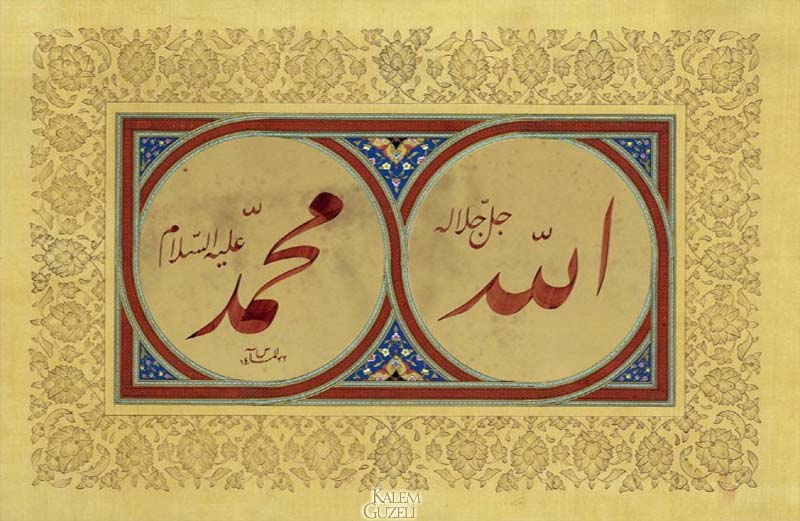 الله
جل جلاله
محمد
عليه السلام
١٤٢٢
KALEM
GÜZELİ